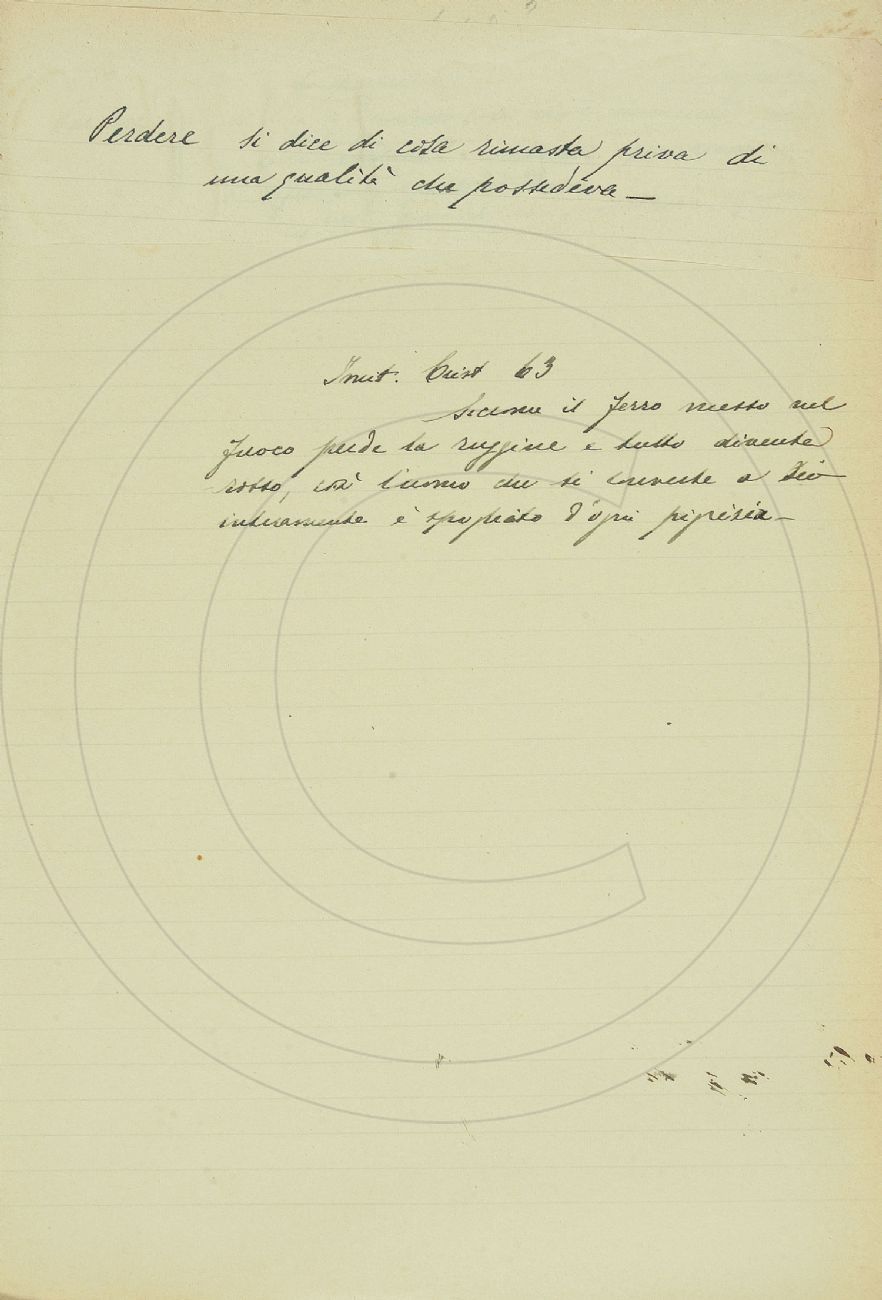 Perdere si dice di cosa rimasta priva di
una qualità che possedeva —
Imit. Crist 63
Siccome il ferro messo nel
fuoco perde la ruggine e tutto diventa
rosso, così l'uomo che si converte a Dio
interamente è spogliato d'ogni pigrizia —